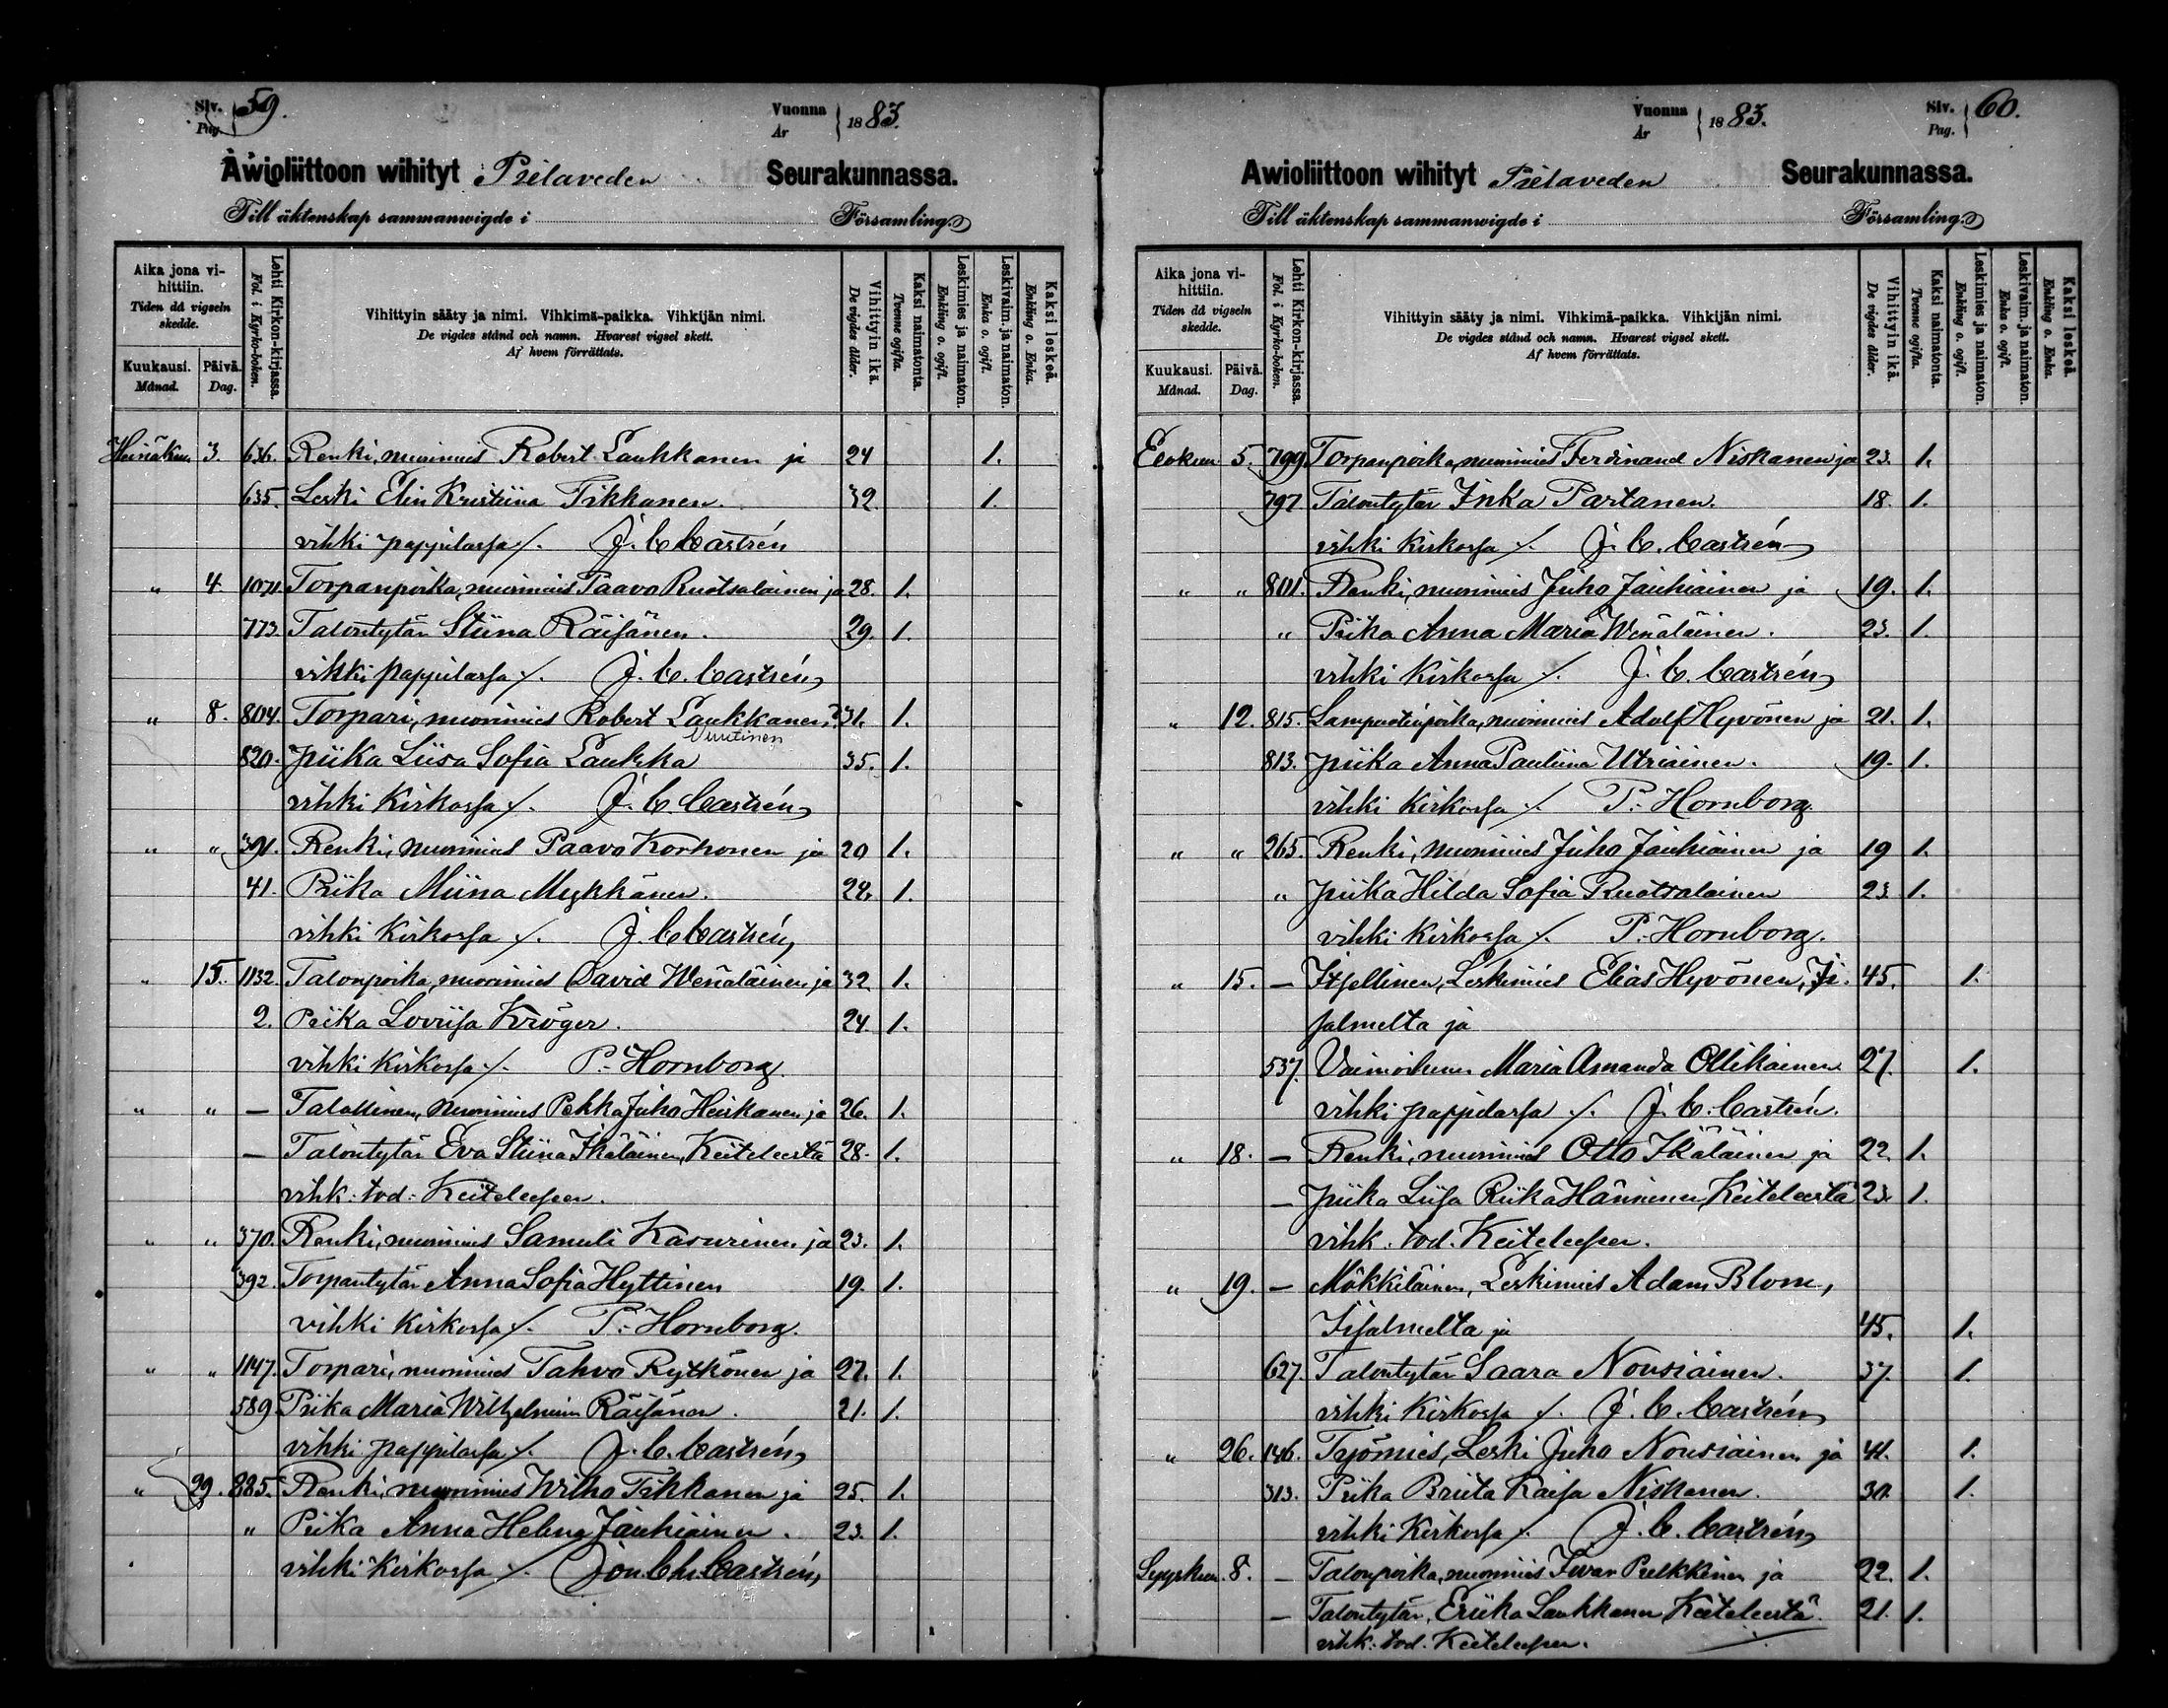 Siv. Pag. 59.
Vuonna År 1883.
Awioliittoon wihityt Pielaveden Seurakunnassa.
Till äktenskap sammanwigde i Församling.
Aika jona vihittiin. Tiden då vigseln skedde.
Kuukausi. Månad. Päivä. Dag.
Lehti Kirkon-kirjassa. Fol. i Kyrko-boken.
Vihittyin sääty ja nimi. Vihkimä-paikka. Vihkijän nimi.
De vigdes stånd och namn. Hvarest vigsel skett.
Af hvem förrättats.
Vihittyin ikä. De vigdes ålder.
Kaksi naimatonta. Tvenne ogifta.
Leskimies ja naimaton. Enkling o. ogift.
Leskivaim. ja naimaton. Enka o. ogift.
Kaksi leskeä. Enkling o. Enka.
Heinäkuu 3. 636. Renki, nuorimies Robert Laukkanen ja 24 1.
635. Leski Elin Kristiina Tikkanen. 32. 1.
vihki pappilassa /. J. C. Castrén
" 4. 1071. Torpanpoika, nuorimies Paavo Ruotsalainen ja 28. 1.
773. Talontytär Stiina Räisänen. 29. 1.
vihki pappilassa /. J. C. Castrén
" 8. 804. Torpari, nuorimies Robert Laukkanen 31. 1.
Vuutinen
820. piika Liisa Sofia Laukka 35. 1.
vihki Kirkossa /. J. C. Castrén
" " 391. Renki, nuorimies Paavo Korhonen ja 20 1.
41. Piika Miina Mykkänen. 28. 1.
vihki Kirkossa /. J. C. Castrén
" 15. 1132. Talonpoika, nuorimies David Wenäläinen ja 32. 1.
2. Piika Loviisa Kröger. 24. 1.
vihki Kirkossa /. P. Hornborg.
" " — Talollinen, nuorimies Pekka Juho Heikanen ja 26. 1.
— Talontytär Eva Stiina Ikäläinen, Keiteleestä 28. 1.
vihk. tod. Keiteleesen.
" " 370. Renki, nuorimies Samuli Kasurinen ja 23. 1.
392. Torpantytär Anna Sofia Hyttinen 19. 1.
vihki Kirkossa /. P. Hornborg.
" " 1147. Torpari, nuorimies Tahvo Rytkönen ja 27. 1.
589. Piika Maria Wilhelmiina Räisänen. 21. 1.
vihki pappilassa /. J. C. Castrén
" 29. 885. Renki, nuorimies Wilho Tikkanen ja 25. 1.
" Piika Anna Helena Jauhiainen. 23. 1.
vihki Kirkossa /. Jon. Chr. Castrén
Vuonna År 1883.
Siv. Pag. 60.
Awioliittoon wihityt Pielaveden Seurakunnassa.
Till äktenskap sammanwigde i Församling.
Aika jona vihittiin. Tiden då vigseln skedde.
Kuukausi. Månad. Päivä. Dag.
Lehti Kirkon-kirjassa. Fol. i Kyrko-boken.
Vihittyin sääty ja nimi. Vihkimä-paikka. Vihkijän nimi.
De vigdes stånd och namn. Hvarest vigsel skett.
Af hvem förrättats.
Vihittyin ikä. De vigdes ålder.
Kaksi naimatonta. Tvenne ogifta.
Leskimies ja naimaton. Enkling o. ogift.
Leskivaim. ja naimaton. Enka o. ogift.
Kaksi leskeä. Enkling o. Enka.
Elokuu 5. 799. Torpanpoika, nuorimies Ferdinand Niskanen ja 23. 1.
797. Talontytär Inka Partanen. 18. 1.
vihki Kirkossa /. J. C. Castrén
" " 801. Renki, nuorimies Juho Jauhiainen ja 19. 1.
" Piika Anna Maria Wenäläinen. 23. 1.
vihki Kirkossa /. J. C. Castrén
" 12. 815. Lampuotinpoika, nuorimies Adolf Hyvönen ja 21. 1.
813. piika Anna Pauliina Utriainen. 19. 1.
vihki Kirkossa /. P. Hornborg.
" " 265. Renki, nuorimies Juho Jauhiainen ja 19 1.
" piika Hilda Sofia Ruotsalainen 23 1.
vihki Kirkossa /. P. Hornborg.
" 15. — Itsellinen, Leskimies Elias Hyvönen, Ii- 45. 1.
salmelta ja
537. Vaimoihmi Maria Amanda Ollikainen 27. 1.
vihki pappilassa /. J. C. Castrén.
" 18. — Renki, nuorimies Otto Ikäläinen ja 22. 1.
— piika Liisa Riika Hänninen Keiteleestä 23. 1.
vihk. tod. Keiteleesen.
" 19. — Mökkiläinen, Leskimies Adam Blom,
Iisalmelta ja 45. 1.
627. Talontytär Saara Nousiainen. 37. 1.
vihki Kirkossa /. J. C. Castrén
" 26. 146. Työmies, Leski Juho Nousiainen ja 41. 1.
313. Piika Briita Kaisa Niskanen. 30. 1.
vihki Kirkossa /. J. C. Castrén
Syysk. 8. — Talonpoika, nuorimies Iivar Pulkkinen ja 22. 1.
— Talontytär, Eriika Laukkanen Keiteleestä 21. 1.
vihk. tod. Keiteleesen.